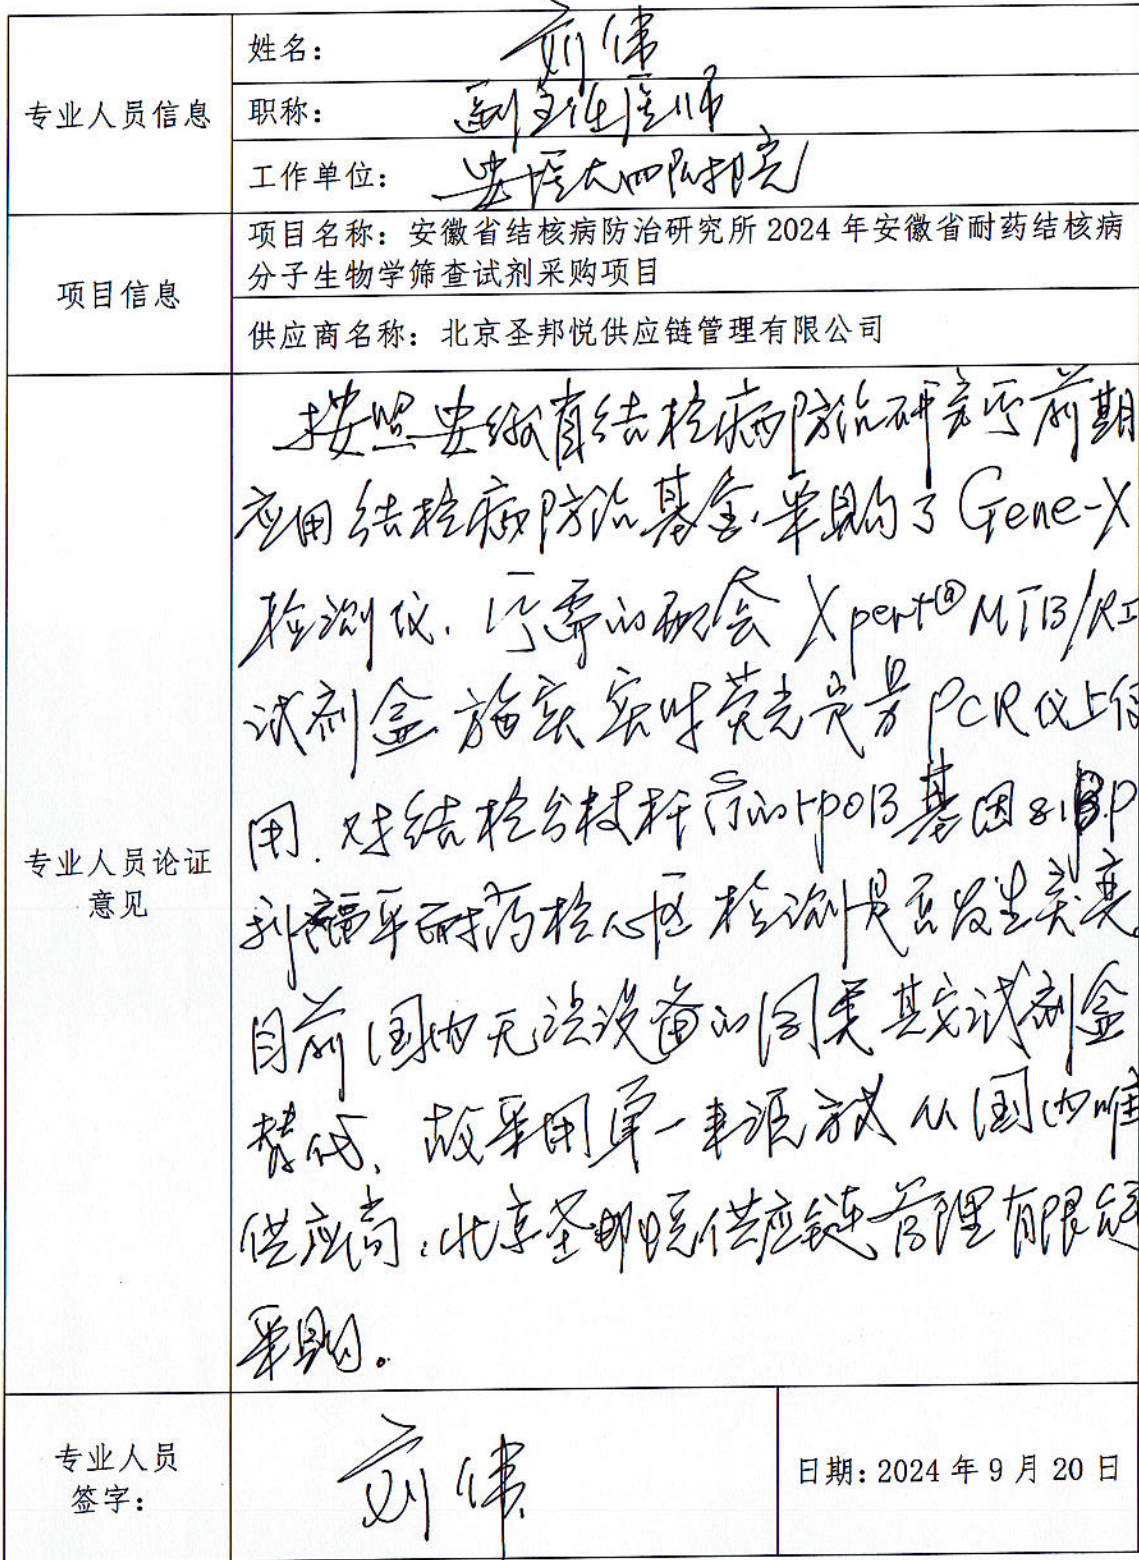 专业人员信息
姓名： 刘伟
职称： 副主任医师
工作单位： 安医大四附院
项目信息
项目名称：安徽省结核病防治研究所 2024 年安徽省耐药结核病
分子生物学筛查试剂采购项目
供应商名称：北京圣邦悦供应链管理有限公司
专业人员论证
意见
按照安徽省结核病防治研究所前期
应用结核病防治基金采购了Gene-X
检测仪．所需的配套 Xpert® MTB/RI
试剂盒 实时荧光定量PCR仪上使
用．对结核分枝杆菌的rpoB基因81BP
利福平耐药核心区 检测是否发生突变。
目前国内无该设备的同类其它试剂盒
替代、故采用单一来源方式 从国内唯
供应商：北京圣邦悦供应链管理有限公司
采购。
专业人员
签字：
刘伟
日期：2024 年 9 月 20 日